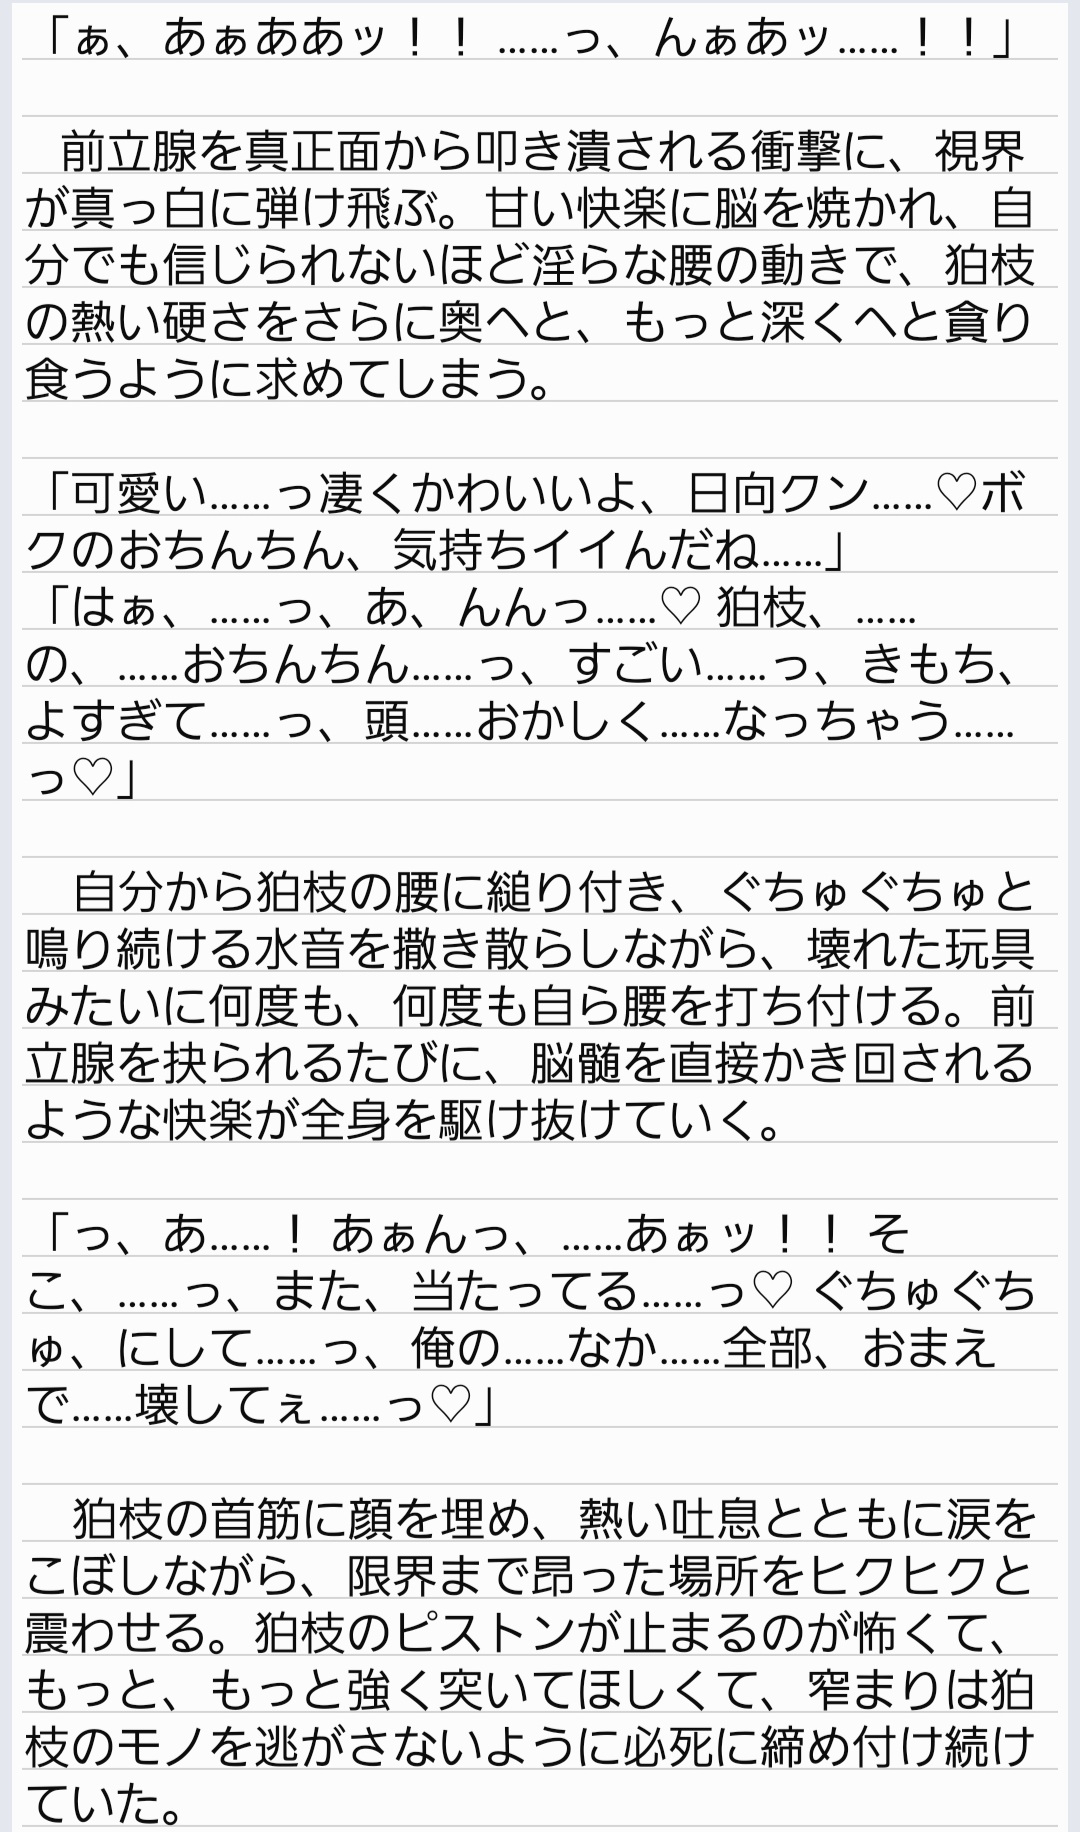 「ぁ、あぁああッ！！ ……っ、んぁあッ……！！」
前立腺を真正面から叩き潰される衝撃に、視界
が真っ白に弾け飛ぶ。甘い快楽に脳を焼かれ、自
分でも信じられないほど淫らな腰の動きで、狛枝
の熱い硬さをさらに奥へと、もっと深くへと貪り
食うように求めてしまう。
「可愛い……っ凄くかわいいよ、日向クン……♡ボ
クのおちんちん、気持ちイイんだね……」
「はぁ、……っ、あ、んんっ……♡ 狛枝、……
の、……おちんちん……っ、すごい……っ、きもち、
よすぎて……っ、頭……おかしく……なっちゃう……
っ♡」
自分から狛枝の腰に縋り付き、ぐちゅぐちゅと
鳴り続ける水音を撒き散らしながら、壊れた玩具
みたいに何度も、何度も自ら腰を打ち付ける。前
立腺を抉られるたびに、脳髄を直接かき回される
ような快楽が全身を駆け抜けていく。
「っ、あ……！ あぁんっ、……あぁッ！！ そ
こ、……っ、また、当たってる……っ♡ ぐちゅぐち
ゅ、にして……っ、俺の……なか……全部、おまえ
で……壊してぇ……っ♡」
狛枝の首筋に顔を埋め、熱い吐息とともに涙を
こぼしながら、限界まで昂った場所をヒクヒクと
震わせる。狛枝のピストンが止まるのが怖くて、
もっと、もっと強く突いてほしくて、窄まりは狛
枝のモノを逃がさないように必死に締め付け続け
ていた。